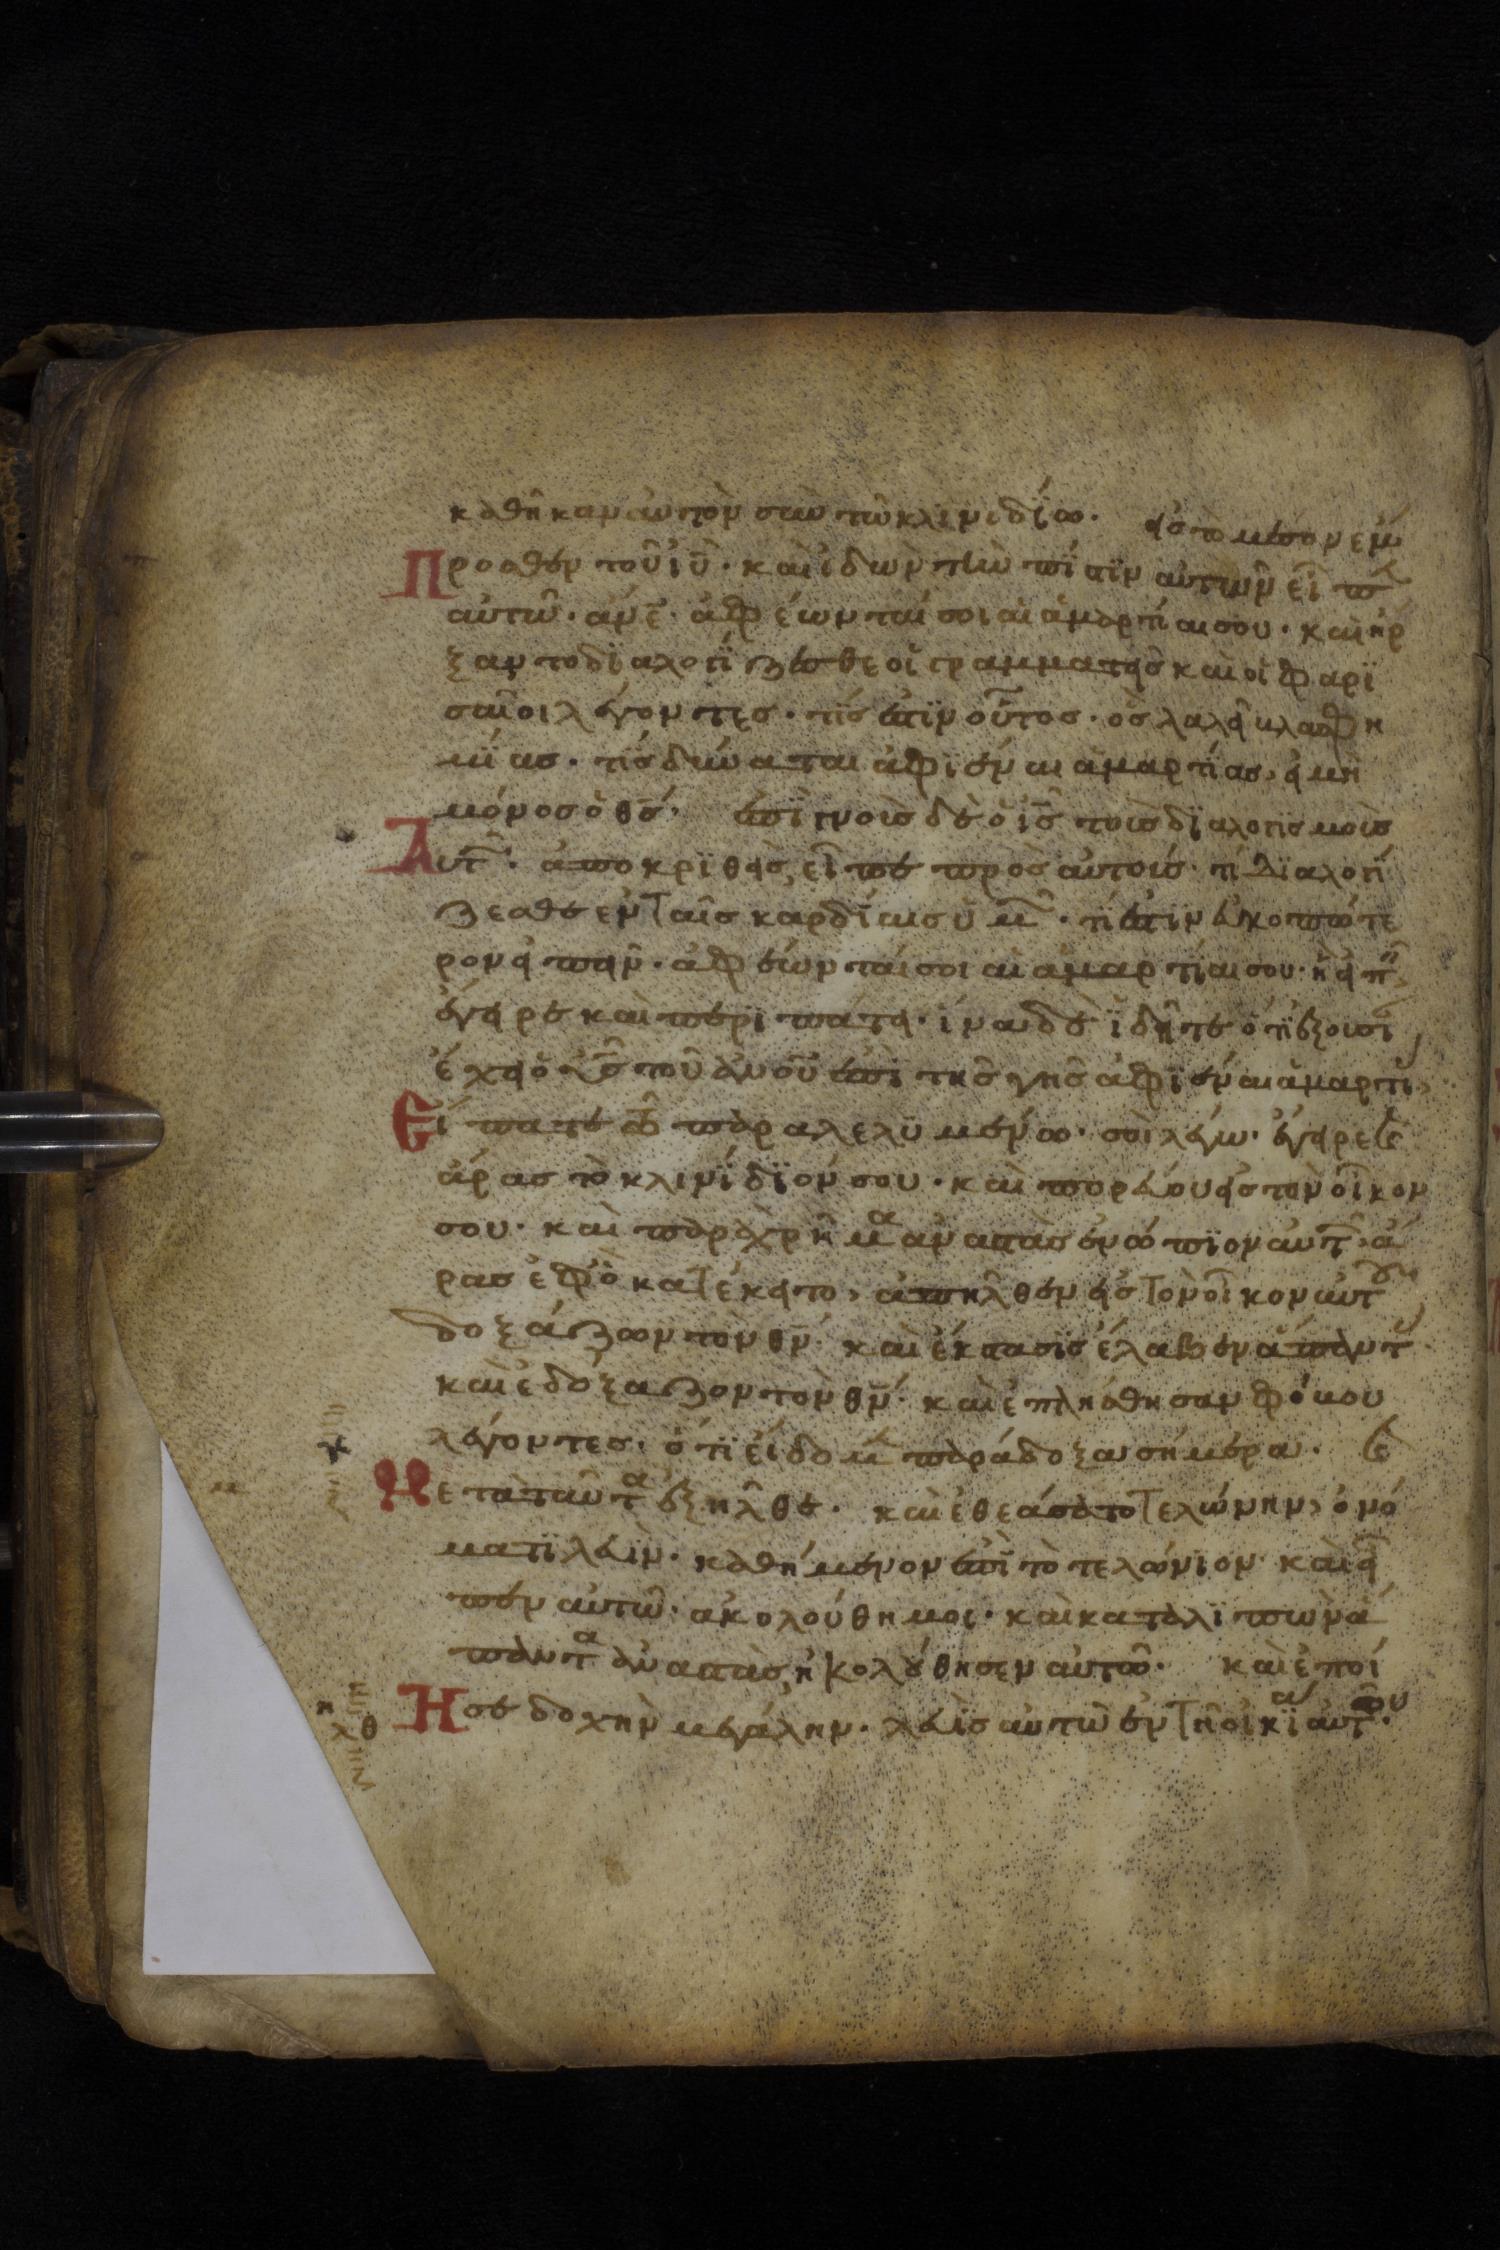 καθῆκαν αὐτὸν σὺν τῶ κλινιδΐω. εἰς τὸ μέσον ἔμ
Προσθεν τοῦ ἰῦ. καὶ ἰδὼν τὴν πΐστϊν αὐτῶν εἶπε
αὐτῶ. ἄνε. ἀφέωνταί σοι αἱ ἁμαρτίαι σου. καὶ ἤρ
ξαντο δϊαλογΐζεσθε οἱ γραμματεῖς καὶ οἱ φαρϊ
σαῖοι λέγοντες. τίς ἐστϊν οὗτος. ὃς λαλεῖ βλασφη
μΐας. τίς δύναται ἀφϊέναι ἁμαρτίας, εἰ μὴ
μόνος ὁ θς. ἐπϊγνοὺς δὲ ὁ ις τοὺς δϊαλογισμοὺς
Αυτῶν. ἀποκρϊθεὶς, εἶπε πρὸς αὐτούς. τί δϊαλογΐ
ζεσθε ἐν ταῖς καρδΐαις ὑμῶν. τί ἐστϊν εὐκοπώτε
ρον εἰπεῖν. ἀφέωνταί σοι αἱ ἁμαρτίαι σου. ἢ εἰπεῖν,
ἔγειρε καὶ περϊπάτει. ἵνα δὲ ϊδῆτε ὅτϊ ἐξουσί
ἔχει ὁ υς τοῦ ἀνου ἐπὶ τῆς γῆς ἀφϊέναι ἁμαρτί,
Εἶπατε τῶ παραλελϋμένω. σοὶ λέγω. ἔγειρε
ἄρας τὸ κλινΐδϊόν σου. καὶ πορεύου εἰς τὸν οἶκόν
σου. καὶ παραχρῆμα ἀναστὰς ἐνώπϊον αὐτῶν, ἄ
ρας ἐφ' ὃ κατέκειτο, ἀπῆλθεν εἰς τὸν οἶκον αὐτ
δοξάζων τὸν θν. καὶ ἔκστασϊς ἔλαβεν ἅπαντ
καὶ ἐδόξαζον τὸν θν. καὶ ἐπλήσθησαν φόβου
λέγοντες. ὅτϊ εἴδομεν παράδοξα σήμερα.
Μετὰ ταῦτα ἐξῆλθε. καὶ ἐθεάσατο τελώνην, ὀνό
ματϊ λευΐν. καθήμενον ἐπὶ τὸ τελώνϊον. καὶ εἶ
πεν αὐτῶ. ἀκολούθη μοι. καὶ καταλϊπὼν ἅ
παντα ἀναστὰς, ἠκολούθησεν αὐτῶ. καὶ ἐποί
Ησε δοχὴν μεγάλην. λευῒς αὐτῶ ἐν τῆ οἰκϊα αὐτου.